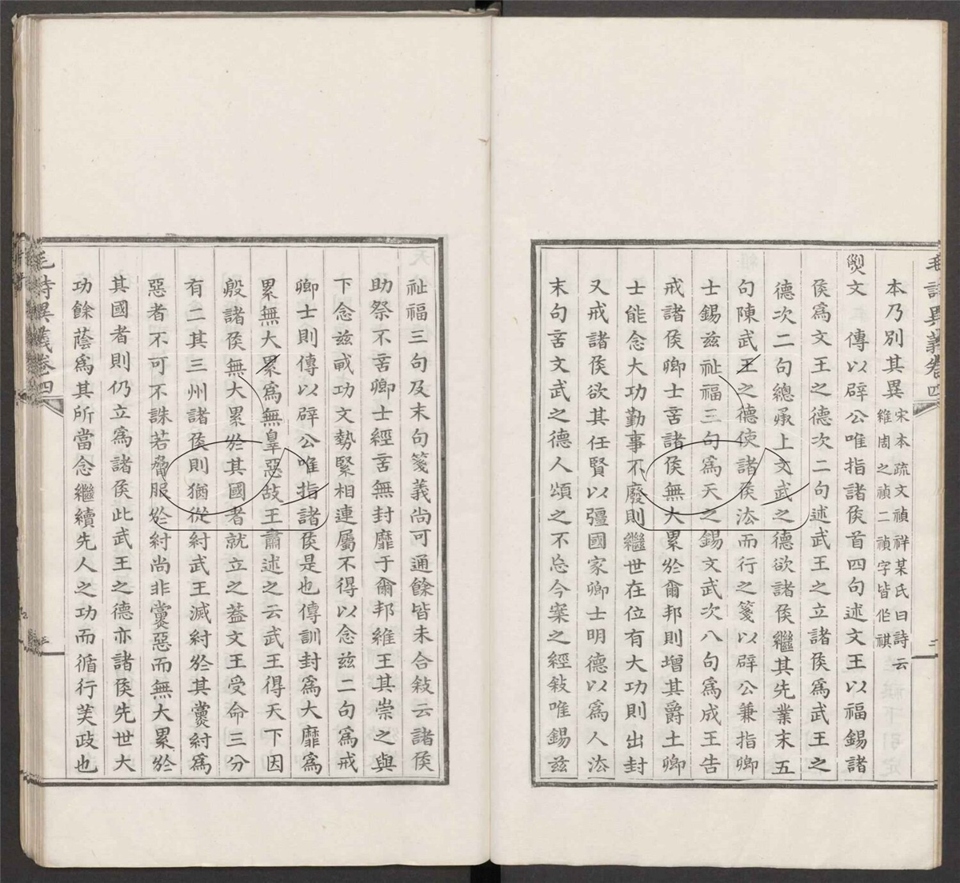 毛詩異義卷四
本乃別其異宋本疏文禎祥某氏曰詩云
維周之禎二禎字皆作祺
文　傳以辟公唯指諸侯首四句述文王以福錫諸
侯爲文王之德次二句述武王之立諸侯爲武王之
德次二句總承上文武之德欲諸侯繼其先業末五
句陳武王之德使諸侯法而行之箋以辟公兼指卿
士錫茲祉福三句爲天之錫文武次八句爲成王告
戒諸侯卿士言諸侯無大累於爾邦則增其爵土卿
士能念大功勤事不廢則繼世在位有大功則出封
又戒諸侯欲其任賢以彊國家卿士明德以爲人法
末句言文武之德人頌之不忘今案之經敍唯錫茲
祉福三句及末句箋義尚可通餘皆未合敍云諸侯
助祭不言卿士經言無封靡于爾邦維王其崇之與
下念茲戎功文勢緊相連屬不得以念茲二句爲戒
卿士則傳以辟公唯指諸侯是也傳訓封爲大靡爲
累無大累爲無辠惡故王肅述之云武王得天下因
殷諸侯無大累於其國者就立之蓋文王受命三分
有二其三州諸侯則猶從紂武王滅紂於其黨紂爲
惡者不可不誅若脅服於紂尚非黨惡而無大累於
其國者則仍立爲諸侯此武王之德亦諸侯先世大
功餘蔭爲其所當念繼續先人之功而循行美政也
毛詩異義卷四